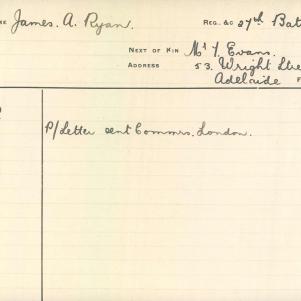 James. A. Ryan. REG. &C 27th Bat
NEXT OF KIN Mr Y. Evans.
ADDRESS 53. Wright Stre
Adelaide F
P/Letter sent Commrs. London.